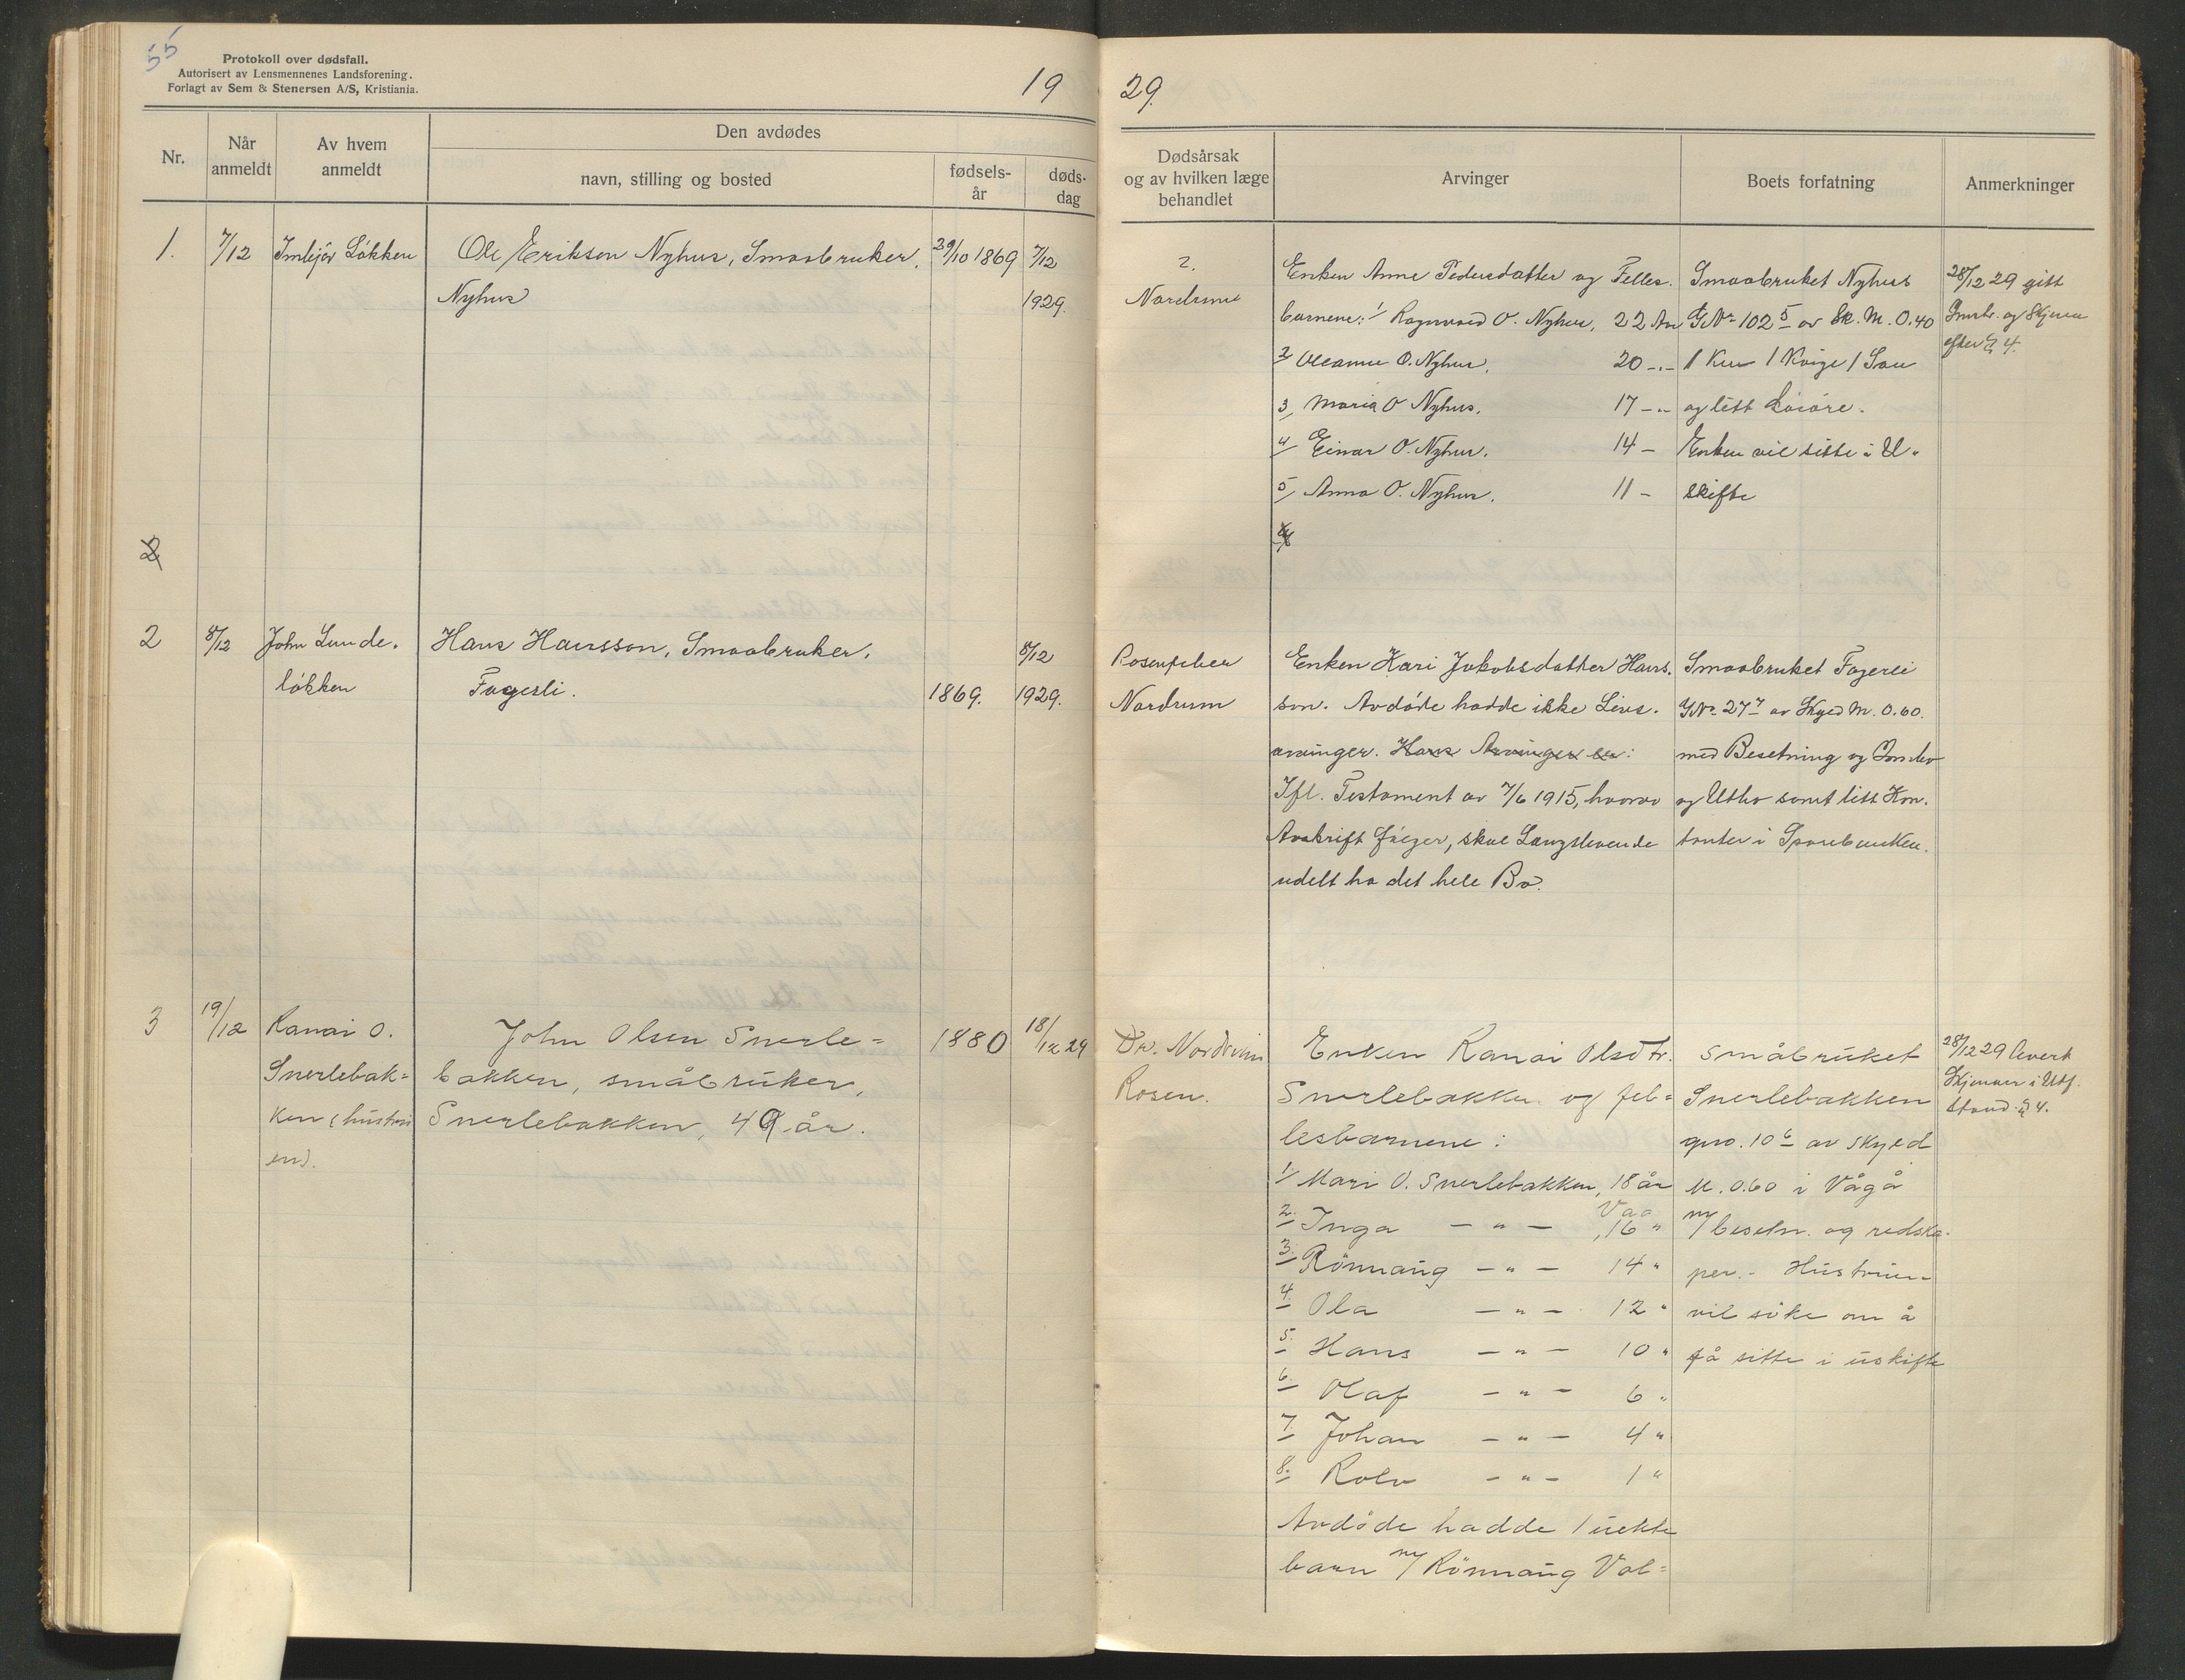 55
Protokoll over dødsfall.
Autorisert av Lensmennenes Landsforening.
Forlagt av Sem & Stenersen A/S, Kristiania.
19
29.
Nr.
Når
anmeldt
Av hvem
anmeldt
Den avdødes
navn, stilling og bosted
fødsels-
år
døds-
dag
Dødsårsak
og av hvilken læge
behandlet
Arvinger
Boets forfatning
Anmerkninger
1.
7/12
Løkken
Ole Erikson Nyhus, Smaabruker,
Nyhus
29/10 1869
7/12
1929.
?.
Nordrum
Enken Anne Pedersdatter og Felles-
barnene: 1/ Ragnvald O. Nyhus, 22 Aar
2/ Oleanne O. Nyhus, 20 -"-
3/ Maria O Nyhus. 17 -"-
4/ Einar O. Nyhus. 14 -
5/ Anna O. Nyhus. 11 -
Smaabruket Nyhus
GNr 102 5 av Sk. M. 0.40
1 Ku 1 Kvige 1 Sau
og litt Løsøre.
Enken vil sitte i U-
skifte
28/12 29 gitt
og Skjema
efter § 4.
2
2
8/12
John Sunde-
løkken
Hans Hansson, Smaabruker,
Fagerli.
1869.
8/12
1929.
Rosenfeber
Nordrum
Enken Kari Jakobsdatter Hans-
son. Avdøde hadde ikke Livs-
arvinger. Hans Arvinger er:
Ifl. Testament av 7/6 1915, hvorav
Avskrift følger, skal Længstlevende
udelt ha det hele Bo.
Smaabruket Fagerli
GNr 27 7 av Skyld M. 0.60.
med Besetning og Innbo
og Utbo samt litt Kon-
tanter i Sparebanken.
3
19/12
Ranai O.
Snerlebak=
ken (hustru
en).
John Olsen Snerle=
bakken, småbruker,
Snerlebakken, 49 år.
1880
18/12 29
Dr. Nordrum
Rosen.
Enken Ranai Olsdtr.
Snerlebakken og fel=
lesbarnene:
1/ Mari O. Snerlebakken, 18 år
Vaa
2. Inga - " - , 16 "
3. Rønnaug - " - 14 "
4. Ola - " - 12 "
5. Hans - " - 10 "
6. Olaf - " - 6 "
7. Johan - " - 4 "
8. Rolv - " - 1 "
Avdøde hadde 1 uekte
barn m/ Rønnaug Val=
Småbruket
Snerlebakken
gno. 10 6 av skyld
M. 0.60 i Vågå
m/ besetn. og redska-
per. - Hustruen
vil søke om å
få sitte i uskifte
28/12 29 levert
Skjemaer i
§ 4.